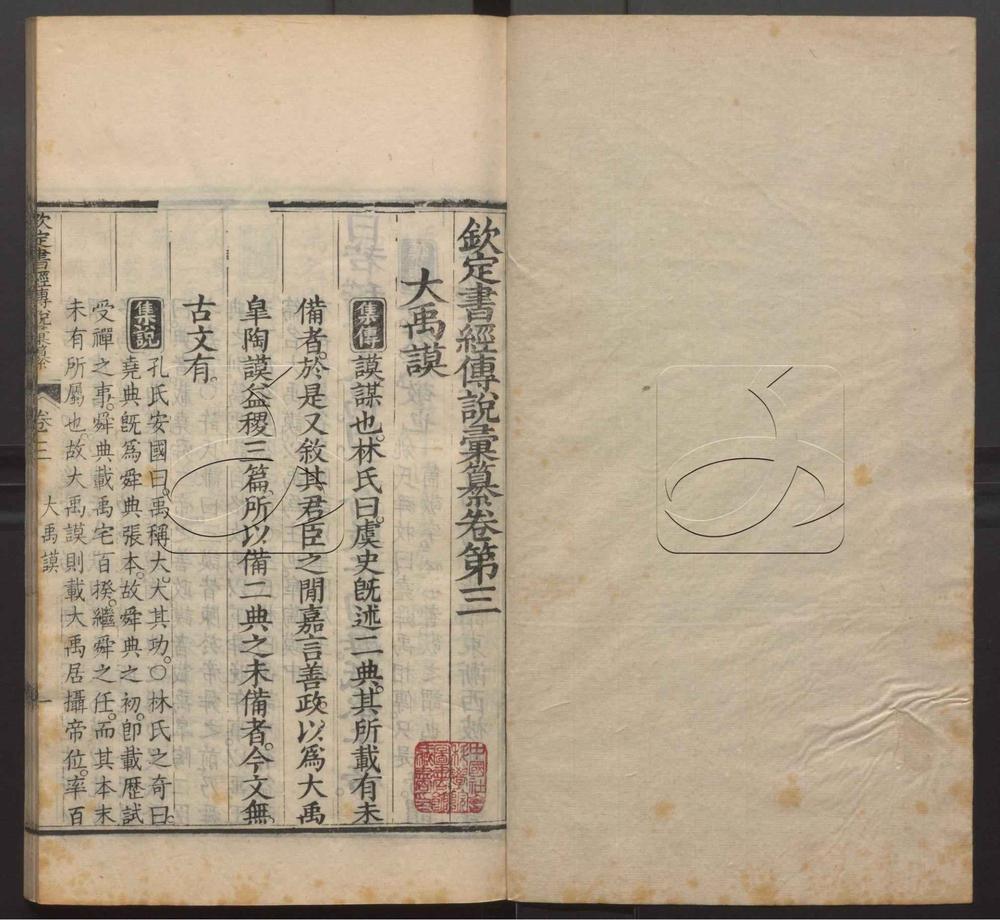 欽定書經傳說彙纂卷第三
大禹謨
集傳 謨謀也。林氏曰。虞史旣述二典。其所載有未
備者。於是又敘其君臣之閒嘉言善政。以爲大禹
臯陶謨益稷三篇。所以備二典之未備者。今文無。
古文有。
集說 孔氏安國曰。禹稱大。大其功。○林氏之奇曰。
堯典旣爲舜典張本。故舜典之初。卽載歷試
受禪之事。舜典載禹宅百揆。繼舜之任。而其本末
未有所屬也。故大禹謨則載大禹居攝帝位。率百
欽定書經傳說彙纂
卷三
大禹謨
一